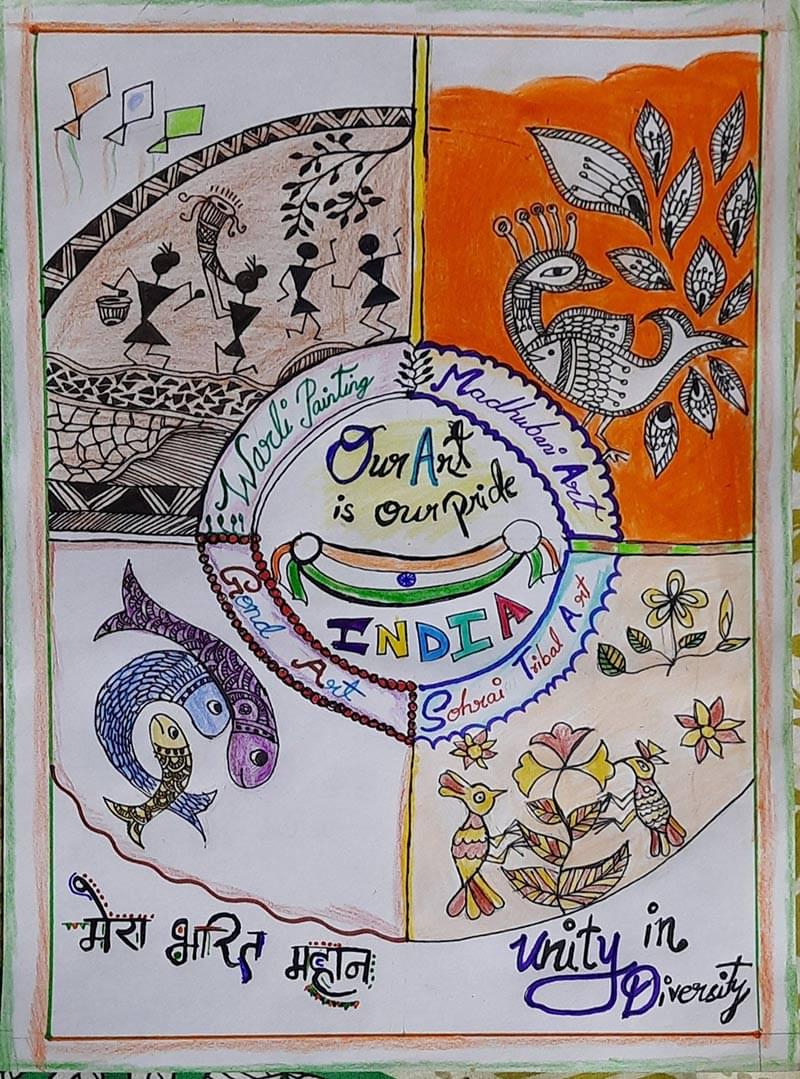 Warli Painting
Madhubani Art
Our Art
is our pride
INDIA
Gond Art
Sohrai Tribal Art
मेरा भारत महान
Unity in
Diversity